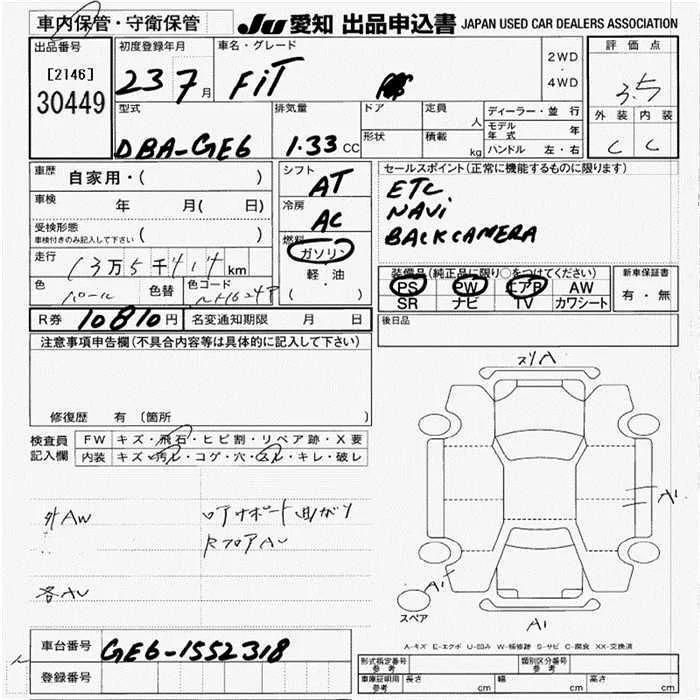 車内保管・守衛保管 JU 愛知 出品申込書 JAPAN USED CAR DEALERS ASSOCIATION
出品番号 初度登録年月 車名・グレード 2WD ・ 4WD 評価点
[2146] 23 7月 FiT 3.5
30449 型式 排気量 ドア 定員 人 ディーラー・並行 外装 内装
モデル年式 年
DBA-GE6 1.33 CC 形状 積載 kg ハンドル 左・右 C C
車歴 自家用・( ) シフト AT セールスポイント(正常に機能するものに限ります)
車検 年 月( 日) 冷房 AC ETC
受検形態 車検付きのみ記入して下さい ( ) NAVi
燃料 ガソリン BACKCAMERA
走行 13万5千414 km 軽・油
装備品(純正品に限り○をつけてください) 新車保証書
色 パール 色替 色コード ( ) PS PW エアB AW 有・無
SR ナビ TV カワシート
R券 10810円 名変通知期限 月 日 後日品
注意事項申告欄(不具合内容等は具体的に記入して下さい)
修復歴 有 〔箇所
検査員記入欄 FW キズ・飛石・ヒビ割・リペア跡・X要
内装 キズ・汚レ・コゲ・穴・スレ・キレ・破レ
外AW
A1
A1
スペア
A1
A-キズ E-エクボ U-凹み W-補修跡 S-サビ C-腐食 XX-交換済
車台番号 GE6-1552318
登録番号
形式指定番号 参考 類別区分番号 参考
車庫証明用 参考 長さ cm 幅 cm 高さ cm